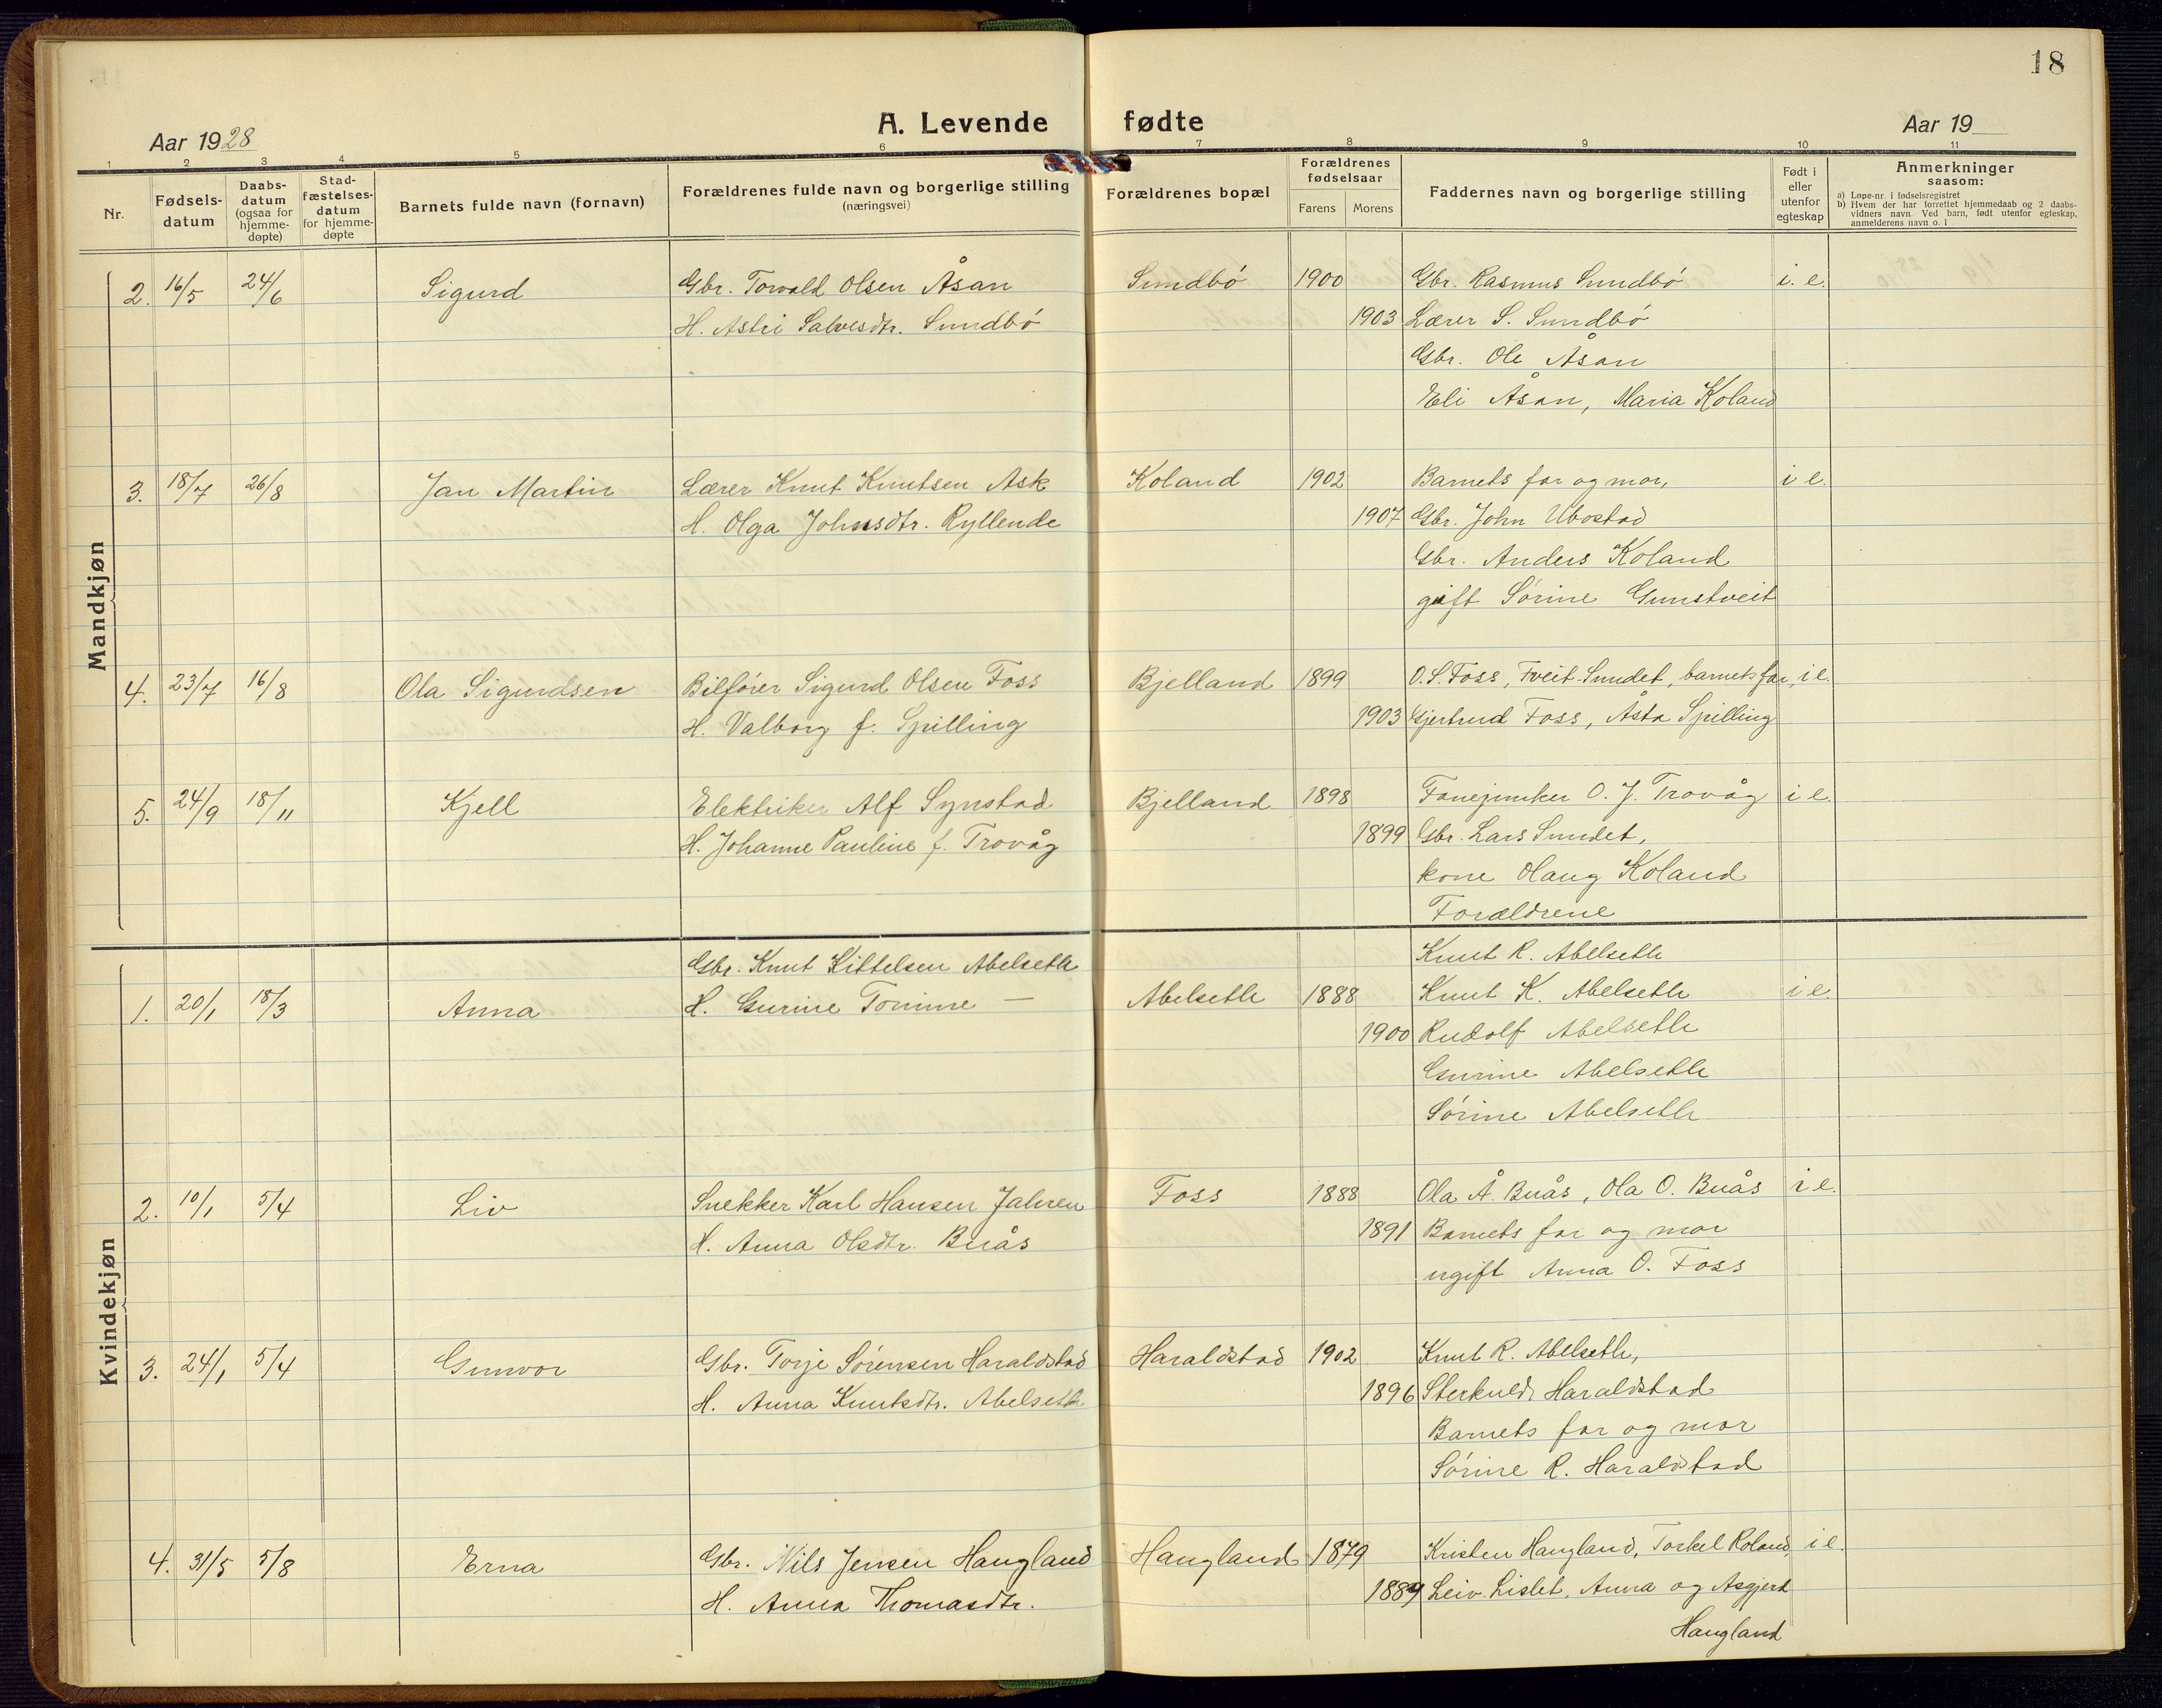 18
A. Levende fødte
Aar 1928
Aar 19
1 2 3 4 5 6 7 8 9 10 11
Nr.
Fødsels-
datum
Daabs-
datum
(ogsaa for
hjemme-
døpte)
Stad-
fæstelses-
datum
for hjemme-
døpte
Barnets fulde navn (fornavn)
Forældrenes fulde navn og borgerlige stilling
(næringsvei)
Forældrenes bopæl
Forældrenes
fødselsaar
Farens Morens
Faddernes navn og borgerlige stilling
Født i
eller
utenfor
egteskap
Anmerkninger
saasom:
a) Løpe-nr. i fødselsregistret
b) Hvem der har forrettet hjemmedaab og 2 daabs-
vidners navn. Ved barn, født utenfor egteskap,
anmelderens navn o. l
Mandkjøn
2. 16/5 24/6 Sigurd Gbr. Torvald Olsen Åsan Sundbö 1900 Gbr. Rasmus Sundbö i. e.
H. Astri Salvesdtr. Sundbö 1903 Lærer S. Sundbö
Gbr. Ole Åsan
Eli Åsan, Maria Koland
3. 18/7 26/8 Jan Martin Lærer Knut Knutsen Ask Koland 1902 Barnets far og mor, i e.
H. Olga Johnsdtr. Ryllende 1907 Gbr. John Ubostad
Gbr. Anders Koland
gift Sörine Gunstveit
4. 23/7 16/8 Ola Sigurdsen Bilförer Sigurd Olsen Foss Bjelland 1899 O. S. Foss, Tveit Sundet, barnets far, i e.
H. Valborg f. Spilling 1903 Gjertrud Foss, Åsta Spilling
5. 24/9 18/11 Kjell Elektriker Alf Synstad Bjelland 1898 Fanejunker O. J. Trovåg i e.
H. Johanne Pauline f. Trovåg 1899 Gbr. Lars Sundet,
kone Olaug Koland
Forældrene
Kvindekjøn
Gbr. Knut Kittelsen Abelseth Knut R. Abelseth
1. 20/1 18/3 Anna H. Gurine Tomine — Abelseth 1888 Knut K. Abelseth i e.
1900 Rudolf Abelseth
Gurine Abelseth
Sörine Abelseth
2. 10/1 5/4 Liv Snekker Karl Hansen Jahren Foss 1888 Ola Å. Buås, Ola O. Buås i e.
H. Anna Olsdtr. Buås 1891 Barnets far og mor
ugift Anna O. Foss
3. 24/1 5/4 Gunvor Gbr. Torje Sörensen Haraldstad Haraldstad 1902 Knut R. Abelseth,
H. Anna Knutsdtr. Abelseth 1896 Sterkuld Haraldstad
Barnets far og mor
Sörine R. Haraldstad
4. 31/5 5/8 Erna Gbr. Nils Jensen Haugland Haugland 1879 Kristen Haugland, Torkel Roland, i e.
H. Anna Thomasdtr. 1889 Leiv Lislet, Anna og Asgjerd
Haugland